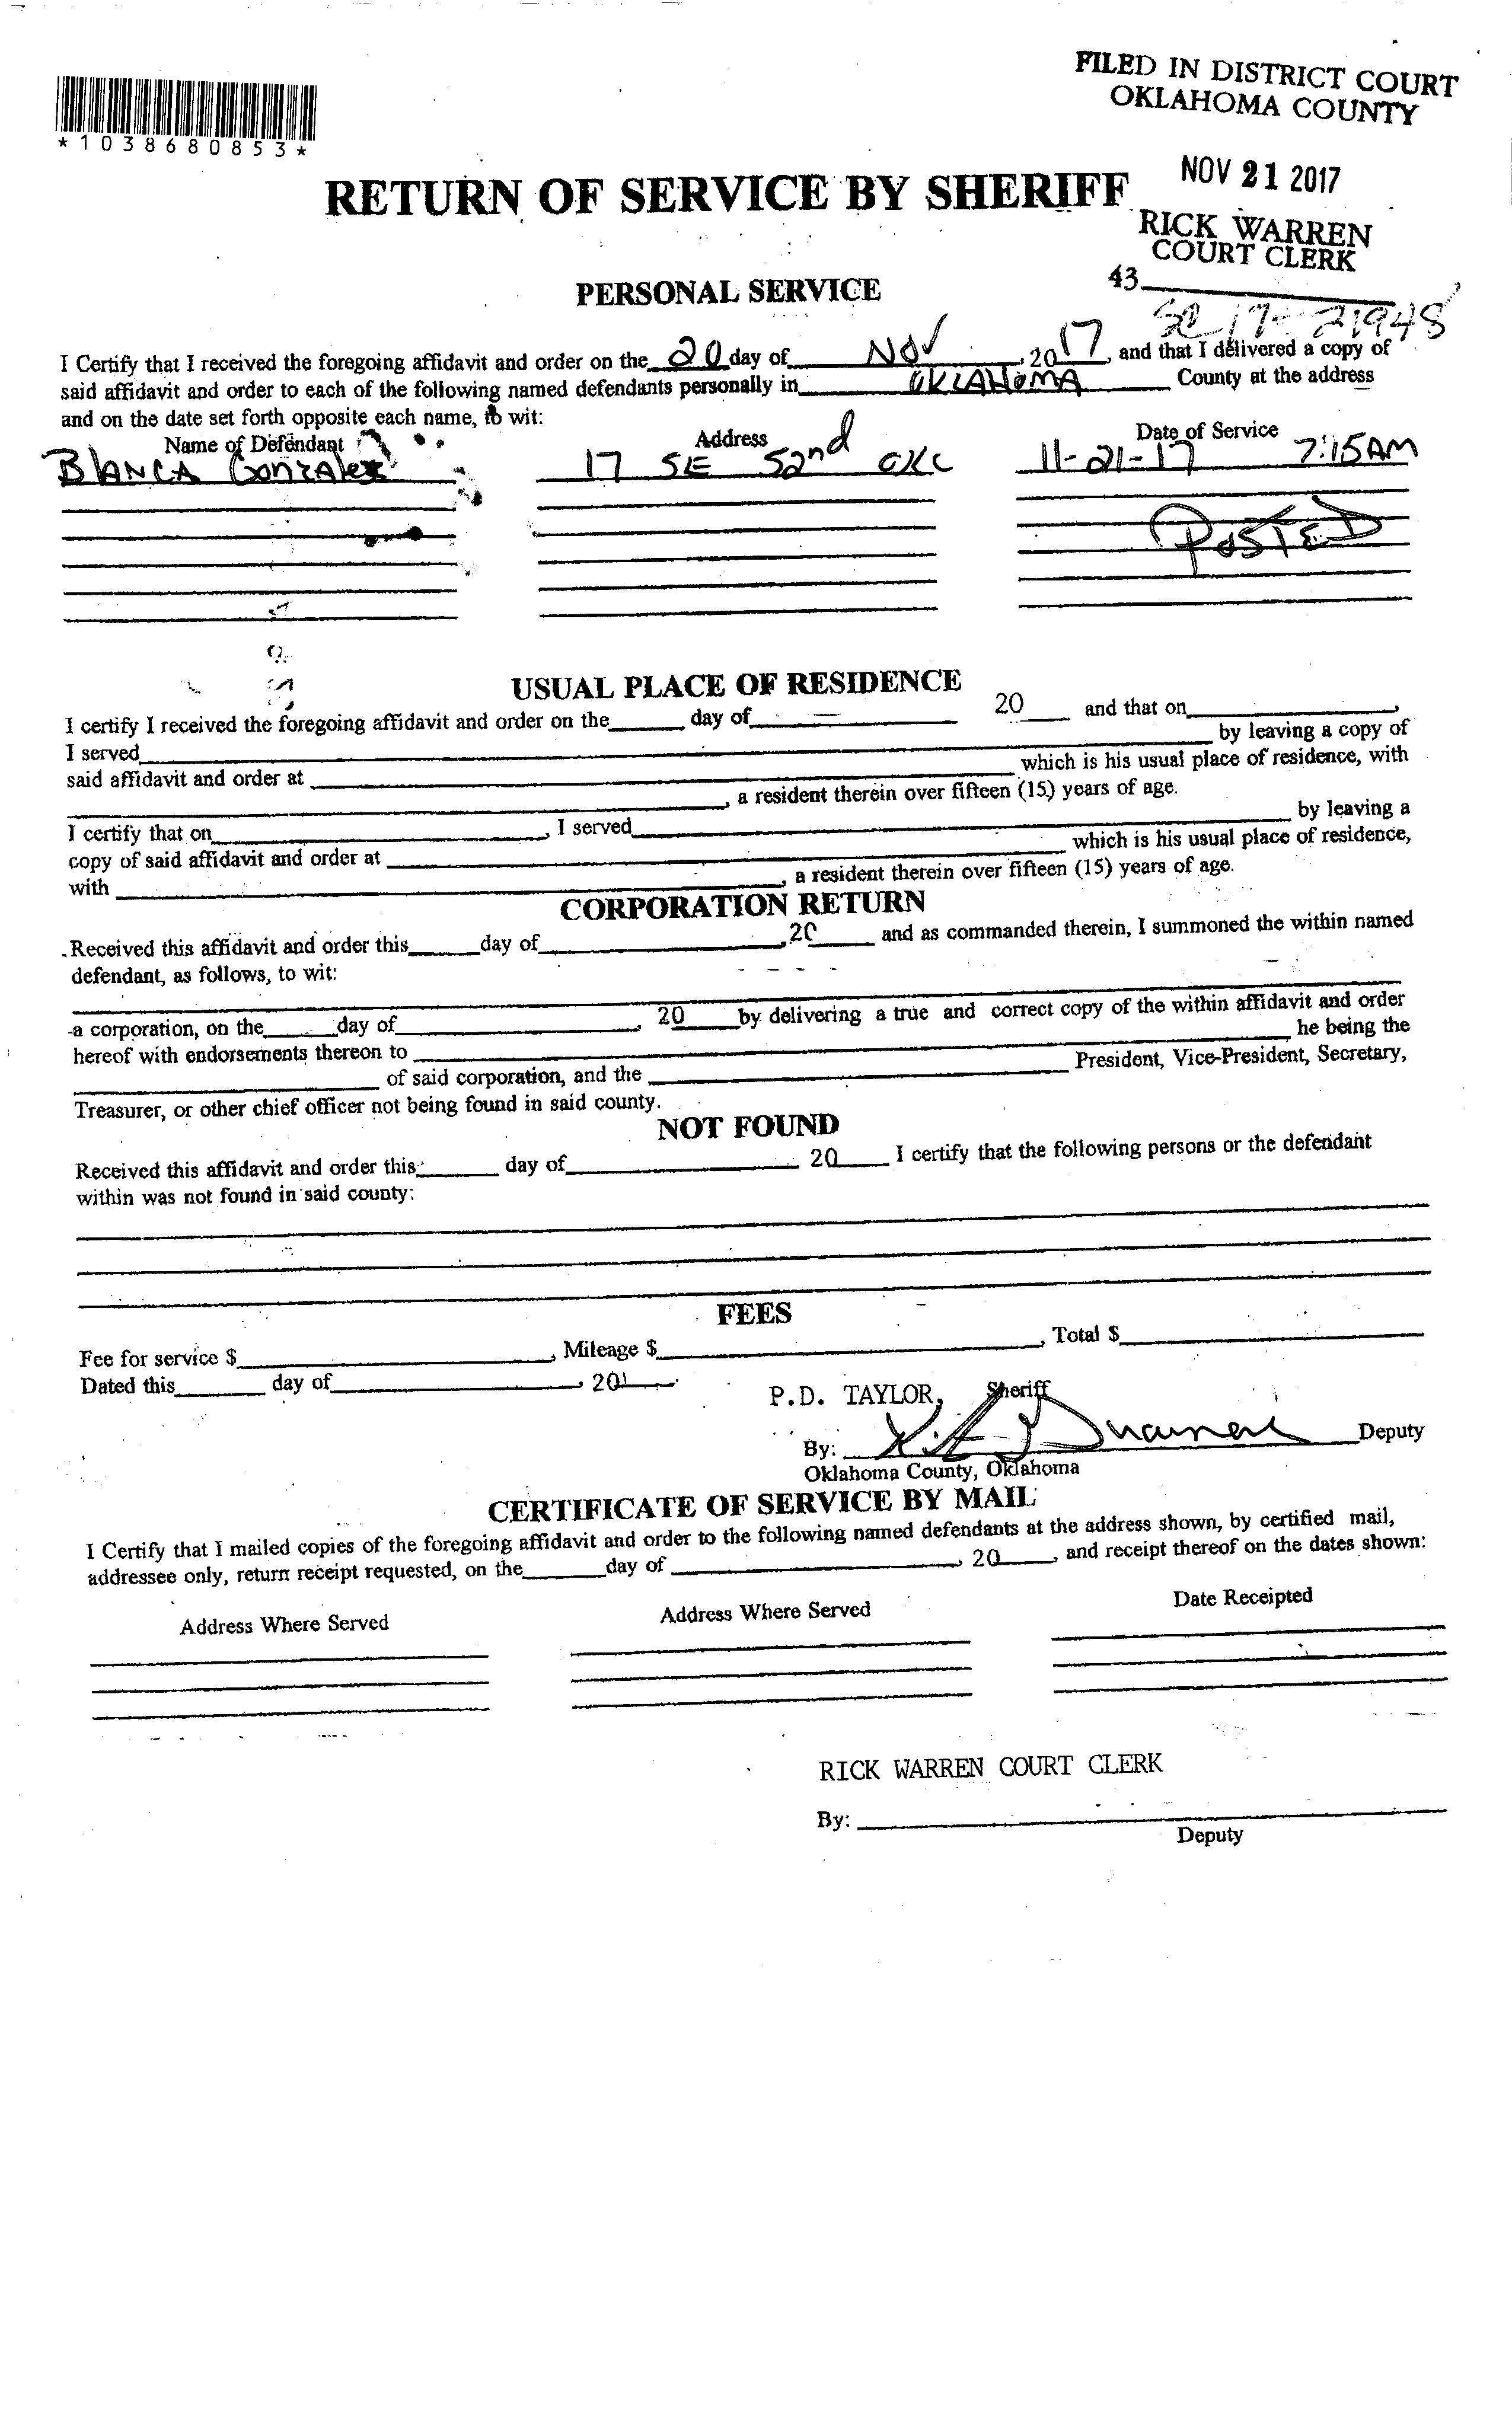 FILED IN DISTRICT COURT
OKLAHOMA COUNTY
*1038680853*
NOV 21 2017
RETURN OF SERVICE BY SHERIFF
RICK WARREN
COURT CLERK
PERSONAL SERVICE
43
SC 17-21948
I Certify that I received the foregoing affidavit and order on the 20 day of NOV, 2017, and that I delivered a copy of
said affidavit and order to each of the following named defendants personally in OKLAHOMA County at the address
and on the date set forth opposite each name, to wit:
Name of Defendant Address Date of Service
BLANCA GonzAlez 17 SE 52nd OKC 11-21-17 7:15AM
POSTED
USUAL PLACE OF RESIDENCE
I certify I received the foregoing affidavit and order on the day of 20 and that on ,
I served by leaving a copy of
said affidavit and order at which is his usual place of residence, with
, a resident therein over fifteen (15) years of age.
I certify that on , I served by leaving a
copy of said affidavit and order at which is his usual place of residence,
with , a resident therein over fifteen (15) years of age.
CORPORATION RETURN
Received this affidavit and order this day of , 20 and as commanded therein, I summoned the within named
defendant, as follows, to wit:
a corporation, on the day of , 20 by delivering a true and correct copy of the within affidavit and order
hereof with endorsements thereon to he being the
of said corporation, and the President, Vice-President, Secretary,
Treasurer, or other chief officer not being found in said county.
NOT FOUND
Received this affidavit and order this day of 20 I certify that the following persons or the defendant
within was not found in said county:
FEES
Fee for service $ , Mileage $ , Total $
Dated this day of , 201
P.D. TAYLOR, Sheriff
By: Deputy
Oklahoma County, Oklahoma
CERTIFICATE OF SERVICE BY MAIL
I Certify that I mailed copies of the foregoing affidavit and order to the following named defendants at the address shown, by certified mail,
addressee only, return receipt requested, on the day of , 20 , and receipt thereof on the dates shown:
Address Where Served Address Where Served Date Receipted
RICK WARREN COURT CLERK
By:
Deputy